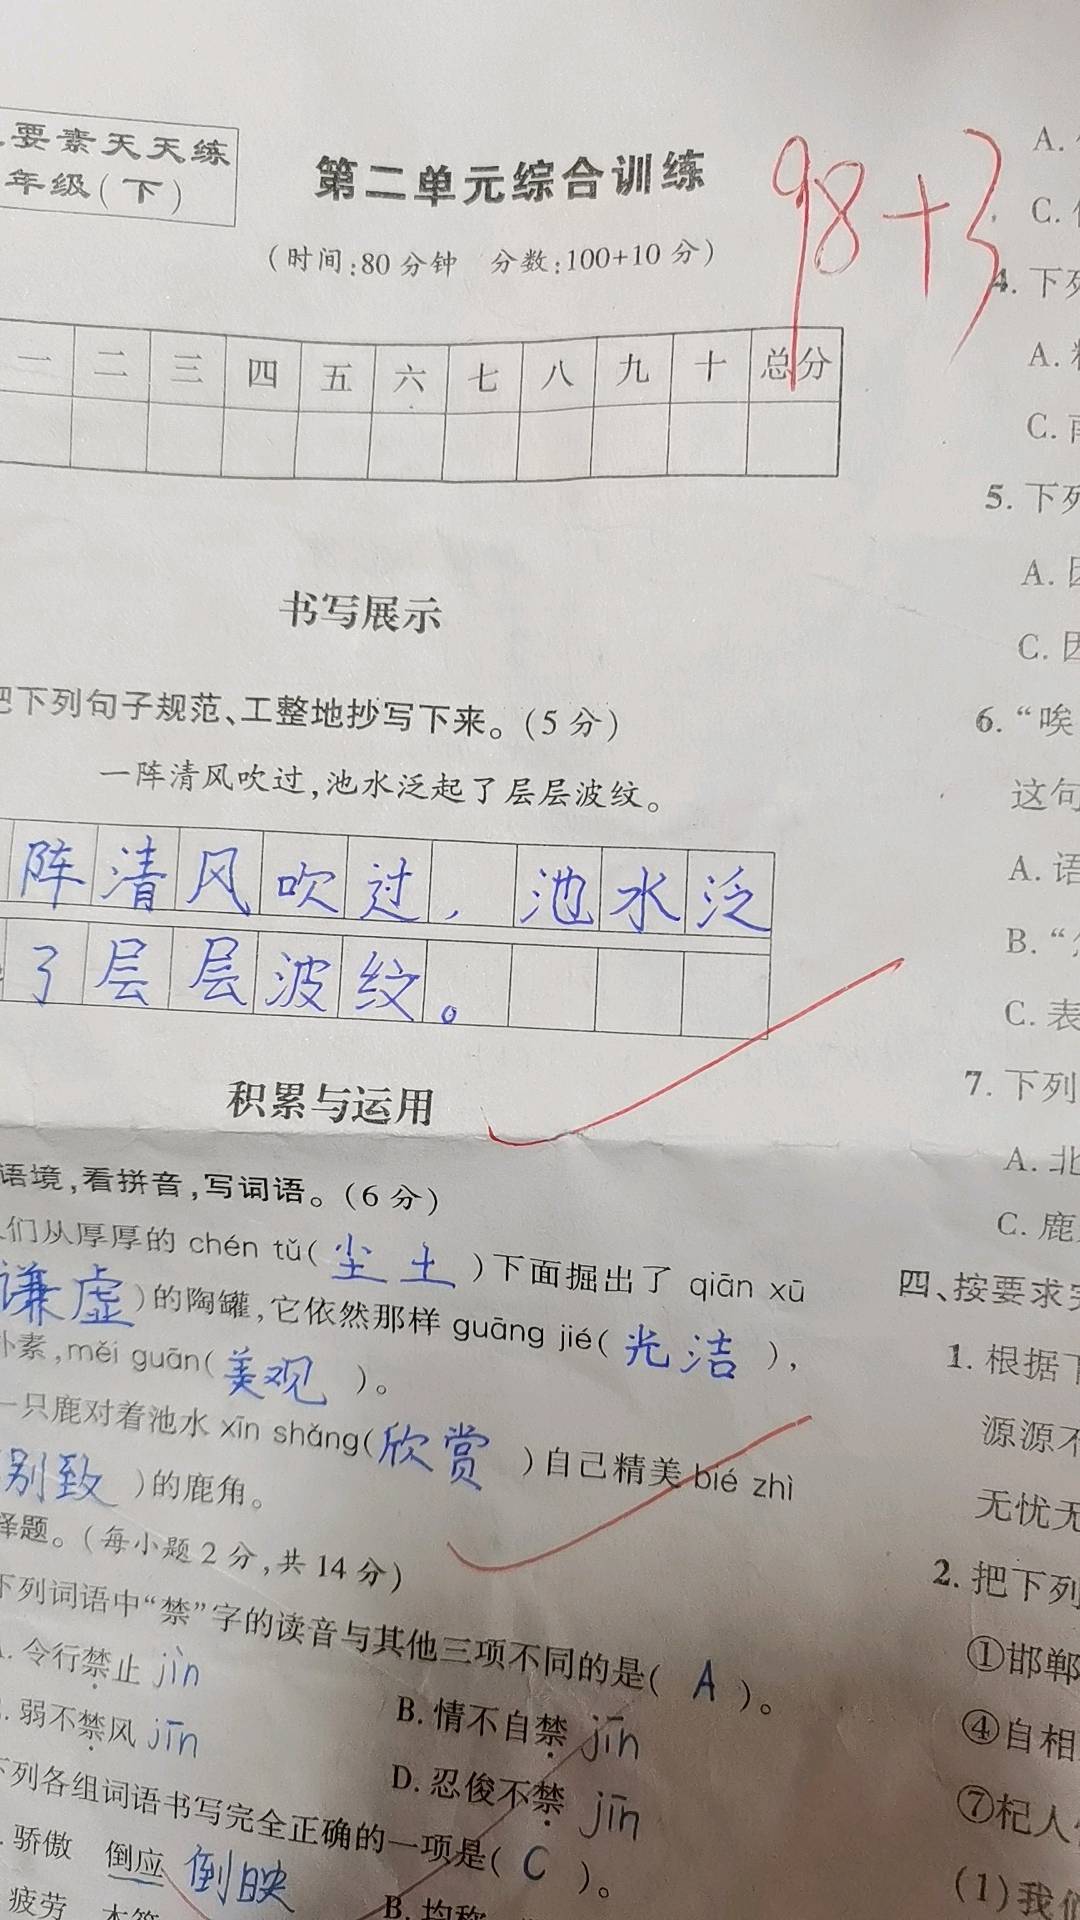 要素天天练
年级(下)
第二单元综合训练
98+3
(时间:80分钟 分数:100+10分)
一 二 三 四 五 六 七 八 九 十 总分
书写展示
把下列句子规范、工整地抄写下来。(5分)
一阵清风吹过,池水泛起了层层波纹。
阵清风吹过,池水泛
了层层波纹。
积累与运用
语境,看拼音,写词语。(6分)
们从厚厚的 chén tǔ(尘土)下面掘出了 qiān xū
谦虚)的陶罐,它依然那样 guāng jié(光洁),
朴素,měi guān(美观)。
一只鹿对着池水 xīn shǎng(欣赏)自己精美 bié zhì
别致)的鹿角。
择题。(每小题2分,共14分)
下列词语中“禁”字的读音与其他三项不同的是(A)。
令行禁止 jìn
B. 情不自禁 jīn
弱不禁风 jīn
D. 忍俊不禁 jīn
下列各组词语书写完全正确的一项是(C)。
骄傲 倒应 倒映
B. 均称
疲劳
A.
C.
4. 下列
A.
C.
5. 下列
A.
C. 因
6. “唉
这句
A. 语
B. “
C. 表
7. 下列
A. 北
C. 鹿
四、按要求完
1. 根据下
源源不
无忧无
2. 把下列
①邯郸
④自相
⑦杞人
(1)我们